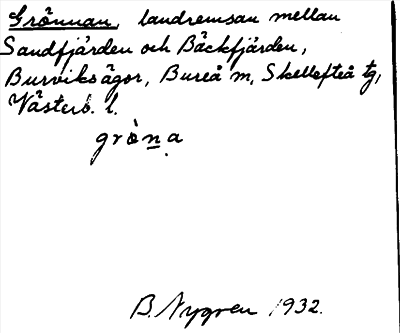 Grönnan, landremsan mellan
Sandfjärden och Bäckfjärden,
Burviksägor, Bureå m, Skellefteå tg,
Västerb. l.
gròn̲ạ
B. Nygren 1932.